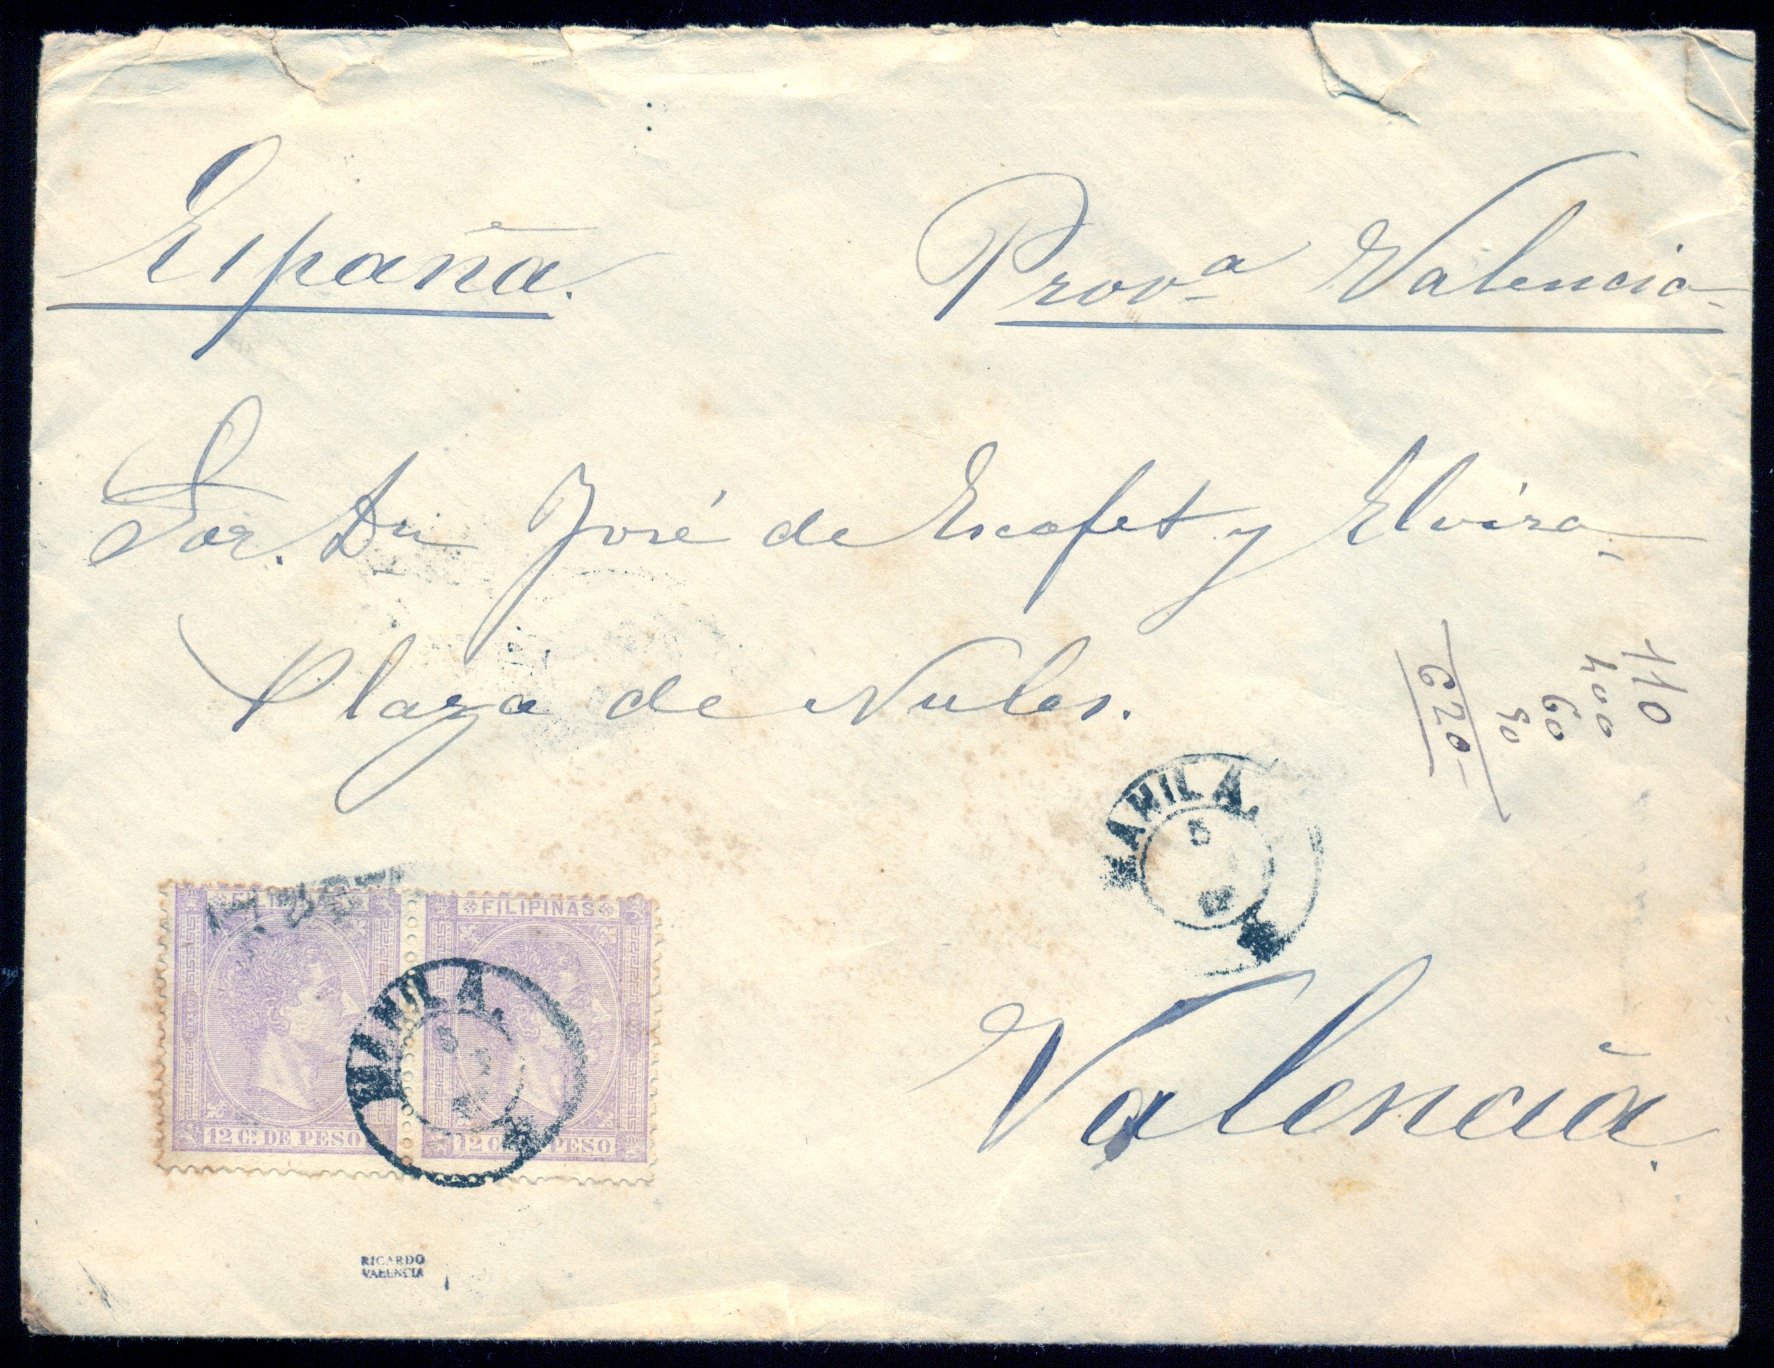 España.
Prov.ª Valencia
Sor. Dn José de Escofet y Elvira
Plaza de Nules.
110
400
60
50
620
MANILA.
5
FILIPINAS
MANILA.
5
12 Cs DE PESO
12 Cs DE PESO
Valencia.
RICARDO
VALENCIA